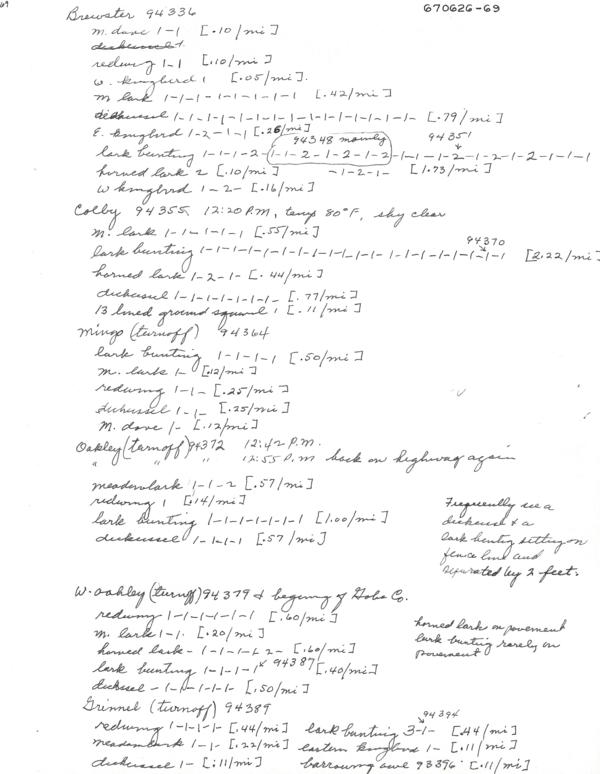 69
670626-69
Brewster 94336
m. dove 1-1 [.10/mi]
dickcissel 1
redwing 1-1 [.10/mi]
w. kingbird 1 [.05/mi].
m lark 1-1-1-1-1-1-1-1 [.42/mi]
dickcissel 1-1-1-1-1-1-1-1-1-1-1-1-1-1-1- [.79/mi]
E. kingbird 1-2-1-1 [.26/mi]
94348 mainly 94351
lark bunting 1-1-1-2-1-1-2-1-2-1-2-1-1-1-2-1-2-1-2-1-1-1
-1-2-1- [1.73/mi]
horned lark 2 [.10/mi]
w kingbird 1-2- [.16/mi]
Colby 94355 12:20 P.M., temp 80°F, sky clear
m. lark 1-1-1-1-1 [.55/mi]
94370
lark bunting 1-1-1-1-1-1-1-1-1-1-1-1-1-1-1-1-1-1-1-1 [2.22/mi]
horned lark 1-2-1- [.44/mi]
dickcissel 1-1-1-1-1-1-1- [.77/mi]
13 lined ground squirrel 1 [.11/mi]
Mingo (turnoff) 94364
lark bunting 1-1-1-1 [.50/mi]
m. lark 1- [.12/mi]
redwing 1-1- [.25/mi]
dickcissel 1-1- [.25/mi]
m. dove 1- [.12/mi]
Oakley (turnoff) 94372 12:42 P.M.
" " " 12:55 P.M back on highway again
meadowlark 1-1-2 [.57/mi]
redwing 1 [.14/mi]
lark bunting 1-1-1-1-1-1-1 [1.00/mi]
dickcissel 1-1-1-1 [.57/mi]
Frequently see a
dickcissel & a
lark bunting sitting on
fence line and
separated by 2 feet.
W. Oakley (turnoff) 94379 & begining of Gove Co.
redwing 1-1-1-1-1-1 [.60/mi]
m. lark 1-1. [.20/mi]
horned lark - 1-1-1-1-2- [.60/mi]
lark bunting 1-1-1-1 94387 [.40/mi]
dickcissel - 1-1-1-1-1- [.50/mi]
horned lark on pavement
lark bunting rarely on
pavement
Grinnel (turnoff) 94389
94394
redwing 1-1-1-1- [.44/mi] lark bunting 3-1- [.44/mi]
meadowlark 1-1- [.22/mi] eastern kingbird 1- [.11/mi]
dickcissel 1- [.11/mi] burrowing owl 93396 [.11/mi]